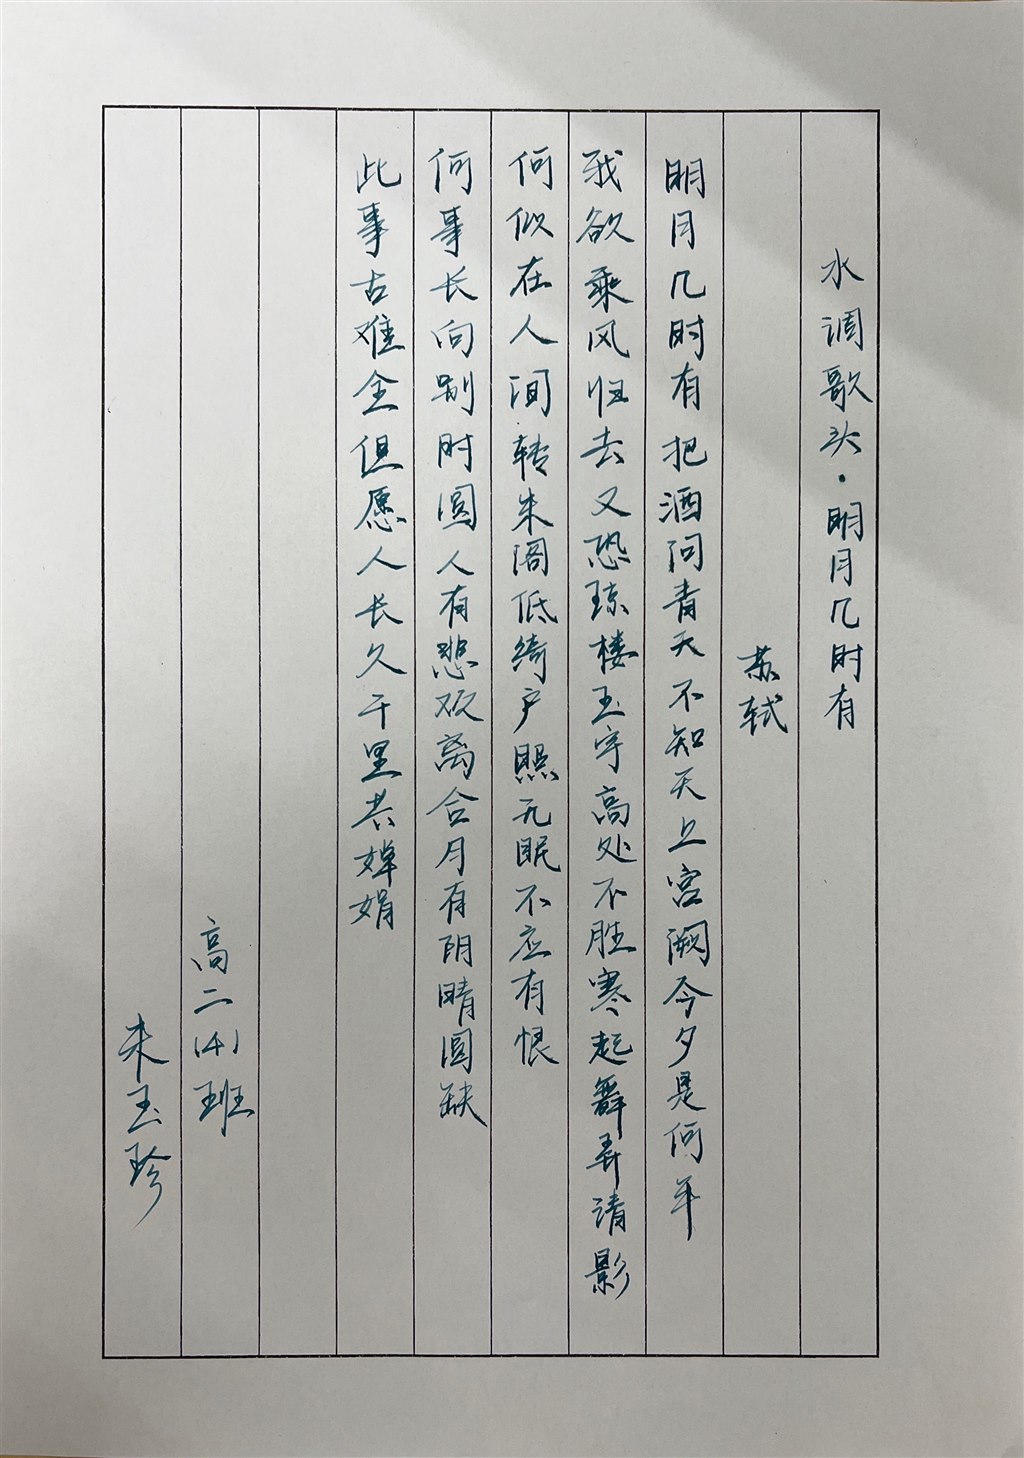 水调歌头·明月几时有
苏轼
明月几时有把酒问青天不知天上宫阙今夕是何年
我欲乘风归去又恐琼楼玉宇高处不胜寒起舞弄清影
何似在人间转朱阁低绮户照无眠不应有恨
何事长向别时圆人有悲欢离合月有阴晴圆缺
此事古难全但愿人长久千里共婵娟
高二(4)班
朱玉珍